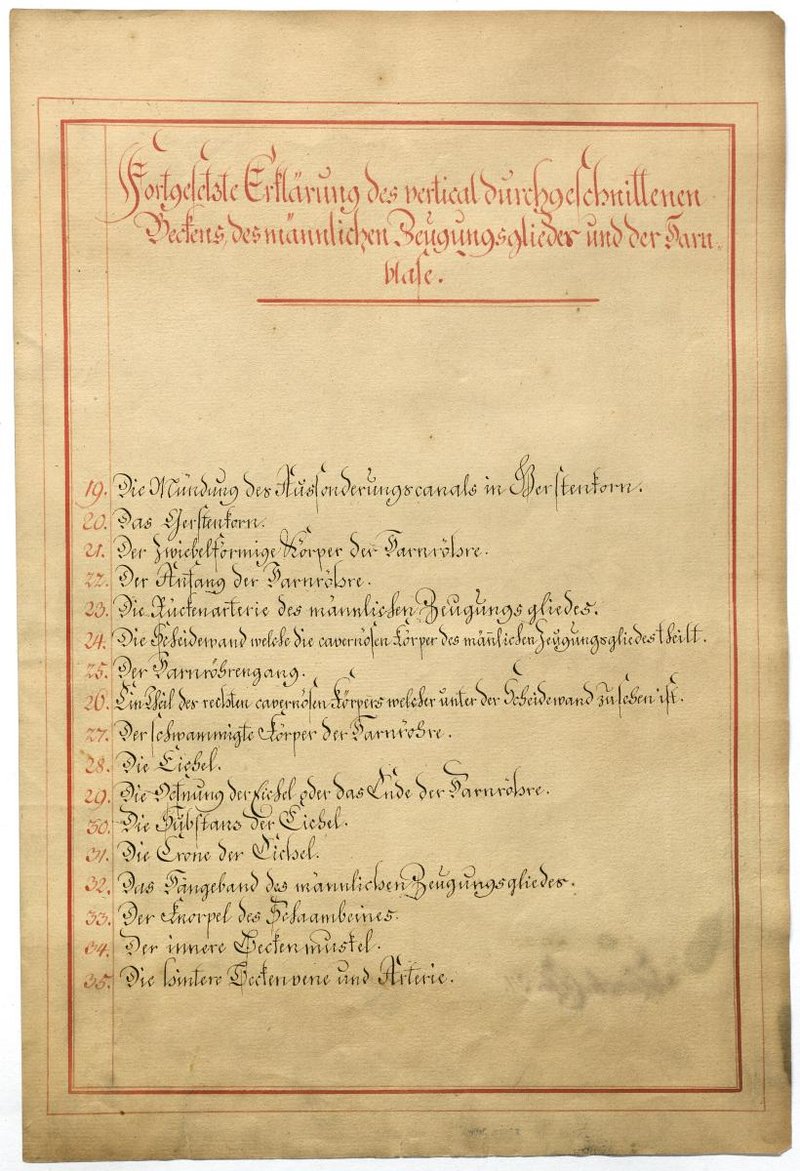 Fortgesetzte Erklärung des vertical durchgeschnittenen
Beckens, des männlichen Zeugungsgliedes und der Harn-
blase.
19. Die Mündung des Aussonderungscanals in Gerstenkorn.
20. Das Gerstenkorn.
21. Der zwiebelförmige Körper der Harnröhre.
22. Der Anfang der Harnröhre.
23. Die Rückenarterie des männlichen Zeugungsgliedes.
24. Die Scheidewand welche die cavernösen Körper des mãnlichen Zeugungsgliedes theilt.
25. Der Harnröhrengang.
26. Ein Theil des rechten cavernösen Körpers welcher unter der Scheidewand zu sehen ist.
27. Der schwammigte Körper der Harnröhre.
28. Die Eichel.
29. Die Oefnung der Eichel oder das Ende der Harnröhre.
30. Die Substans der Eichel.
31. Die Crone der Eichel.
32. Das Hängeband des männlichen Zeugungsgliedes.
33. Der Knorpel des Schaambeines.
34. Der innere Beckenmuskel.
35. Die hintere Beckenvene und Arterie.